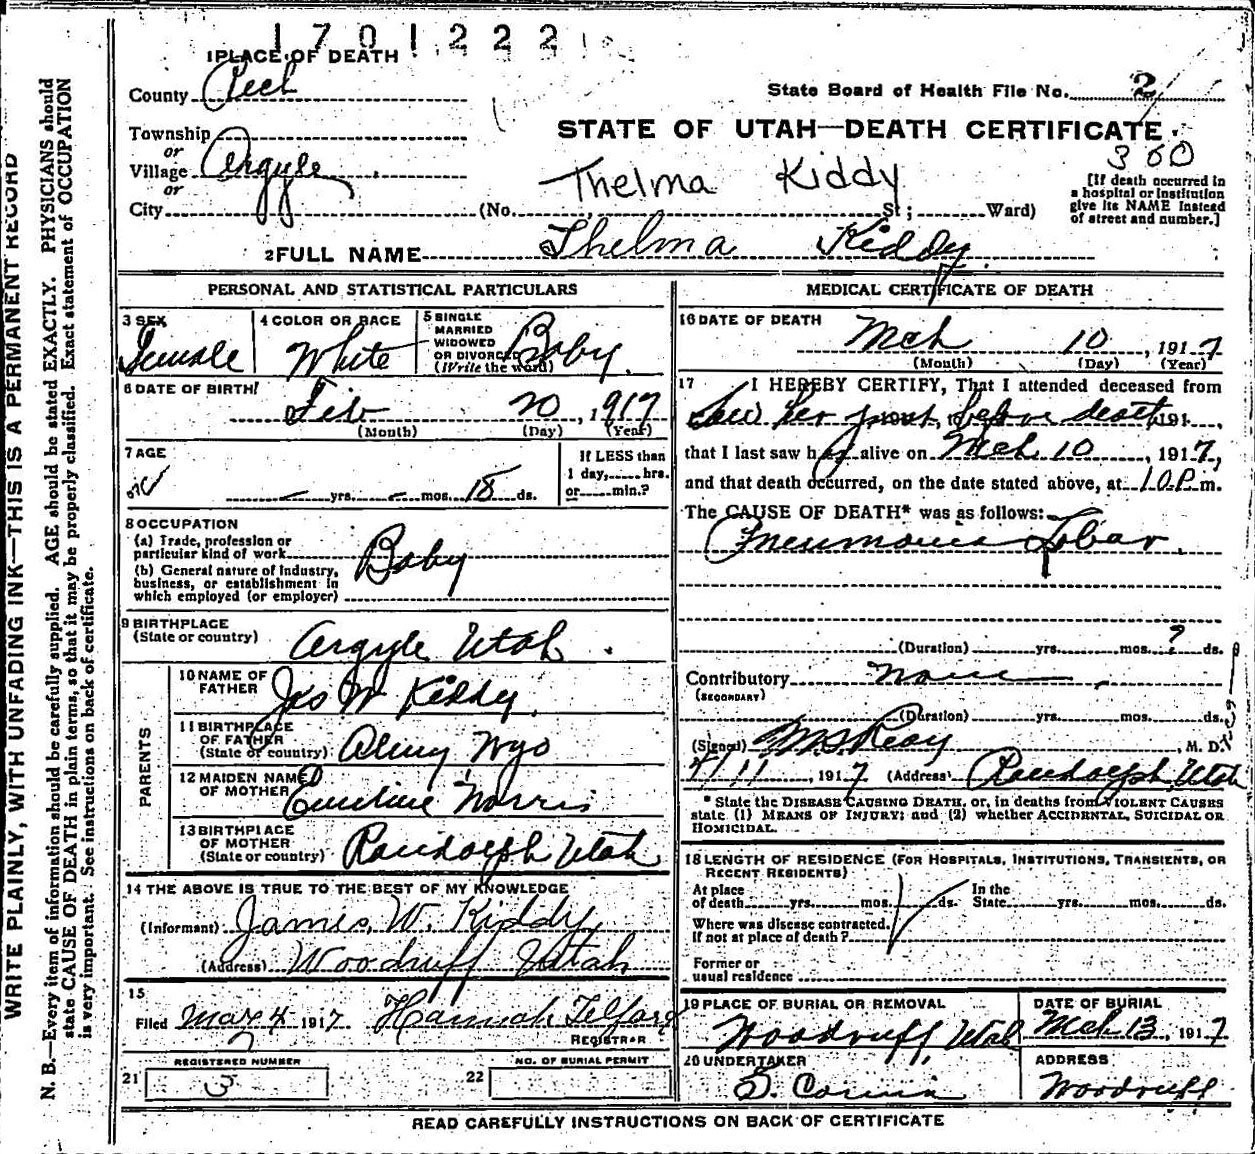 1701222
1 PLACE OF DEATH
County Rich
State Board of Health File No. 2
STATE OF UTAH—DEATH CERTIFICATE
Township
or
Village Argyle
or
City (No. St; Ward)
Thelma Kiddy
360
[If death occurred in
a hospital or institution
give its NAME instead
of street and number.]
2 FULL NAME Thelma Kiddy
PERSONAL AND STATISTICAL PARTICULARS
3 SEX
Female
4 COLOR OR RACE
White
5 SINGLE
MARRIED
WIDOWED
OR DIVORCED
(Write the word)
Baby
6 DATE OF BIRTH
Feb 20, 1917
(Month) (Day) (Year)
7 AGE
— yrs. — mos. 18 ds.
If LESS than
1 day, hrs.
or min.?
8 OCCUPATION
(a) Trade, profession or
particular kind of work
(b) General nature of industry,
business, or establishment in
which employed (or employer)
Baby
9 BIRTHPLACE
(State or country)
Argyle Utah.
PARENTS
10 NAME OF
FATHER
Jas W Kiddy
11 BIRTHPLACE
OF FATHER
(State or country)
Almy Wyo
12 MAIDEN NAME
OF MOTHER
Emeline Norris
13 BIRTHPLACE
OF MOTHER
(State or country)
Randolph Utah
14 THE ABOVE IS TRUE TO THE BEST OF MY KNOWLEDGE
(Informant) James W. Kiddy
(Address) Woodruff Utah
15
Filed 4 1917 Hannah Telford
REGISTRAR
REGISTERED NUMBER
21 3
NO. OF BURIAL PERMIT
22
MEDICAL CERTIFICATE OF DEATH
16 DATE OF DEATH
Mch 10, 1917
(Month) (Day) (Year)
17 I HEREBY CERTIFY, That I attended deceased from
Saw her just before death 191
that I last saw her alive on Mch 10, 1917,
and that death occurred, on the date stated above, at 10 P.m.
The CAUSE OF DEATH* was as follows:
Pneumonia Lobar.
(Duration) yrs. mos. ? ds.
Contributory None
(SECONDARY)
(Duration) yrs. mos. ds.
(Signed) Reay, M. D.
4/11, 1917 (Address) Randolph, Utah
* State the DISEASE CAUSING DEATH, or, in deaths from VIOLENT CAUSES
state (1) MEANS OF INJURY; and (2) whether ACCIDENTAL, SUICIDAL OR
HOMICIDAL.
18 LENGTH OF RESIDENCE (FOR HOSPITALS, INSTITUTIONS, TRANSIENTS, OR
RECENT RESIDENTS)
At place
of death yrs. mos. ds.
In the
State yrs. mos. ds.
Where was disease contracted.
If not at place of death?
Former or
usual residence
19 PLACE OF BURIAL OR REMOVAL
Woodruff, Utah
DATE OF BURIAL
Mch 13, 1917
20 UNDERTAKER
ADDRESS
Woodruff
READ CAREFULLY INSTRUCTIONS ON BACK OF CERTIFICATE
WRITE PLAINLY, WITH UNFADING INK—THIS IS A PERMANENT RECORD
N. B.—Every item of information should be carefully supplied. AGE should be stated EXACTLY. PHYSICIANS should
state CAUSE OF DEATH in plain terms, so that it may be properly classified. Exact statement of OCCUPATION
is very important. See instructions on back of certificate.